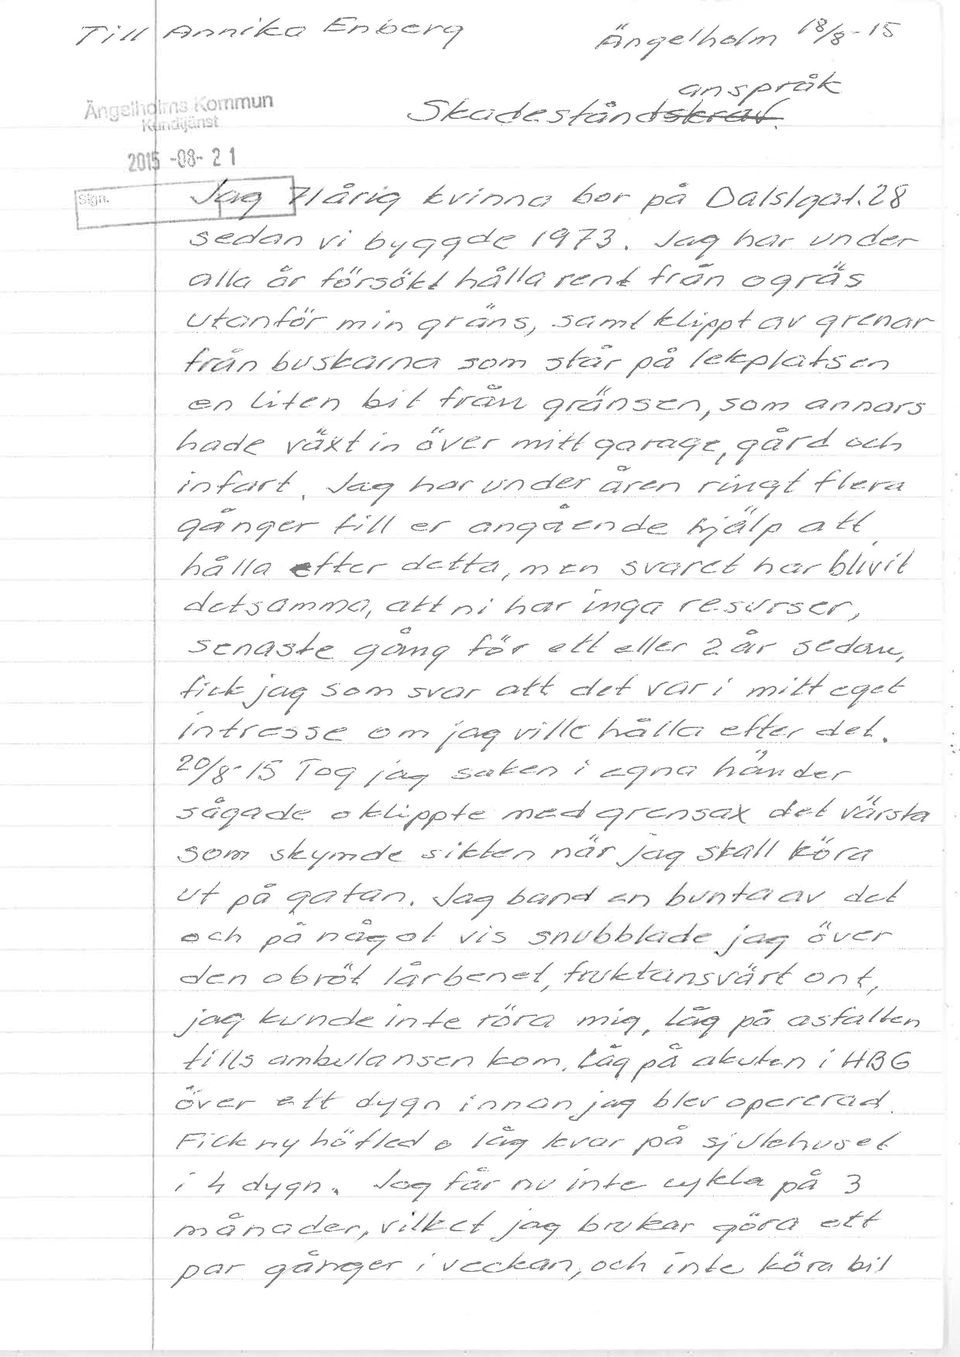 Till Annika Enberg
Ängelholm 18/8-15
Ängelholms Kommun
Kundtjänst
2015 -08- 21
Sign.
anspråk
Skadeståndskrav.
Jag 71årig kvinna bor på Dalslgat.28
sedan vi byggde 1973. Jag har under
alla år försökt hålla rent från ogräs
utanför min gräns, samt klippt av grenar
från buskarna som står på lekplatsen
en liten bit från gränsen, som annars
hade växt in över mitt garage, gård och
infart. Jag har under åren ringt flera
gånger till er angående hjälp att
hålla efter detta, men svaret har blivit
detsamma, att ni har inga resurser,
senaste gång för ett eller 2 år sedan,
fick jag som svar att det var i mitt eget
intresse om jag ville hålla efter det.
20/8-15 Tog jag saken i egna händer
sågade o klippte med grensax det värsta
som skymde sikten när jag skall köra
ut på gatan. Jag band en bunta av det
och på något vis snubblade jag över
den o bröt lårbenet, fruktansvärt ont,
jag kunde inte röra mig, låg på asfalten
tills ambulansen kom. Låg på akuten i HBG
över ett dygn innan jag blev opererad.
Fick ny höftled o låg kvar på sjukhuset
i 4 dygn. Jag får nu inte cykla på 3
månader, vilket jag brukar göra ett
par gånger i veckan, och inte köra bil